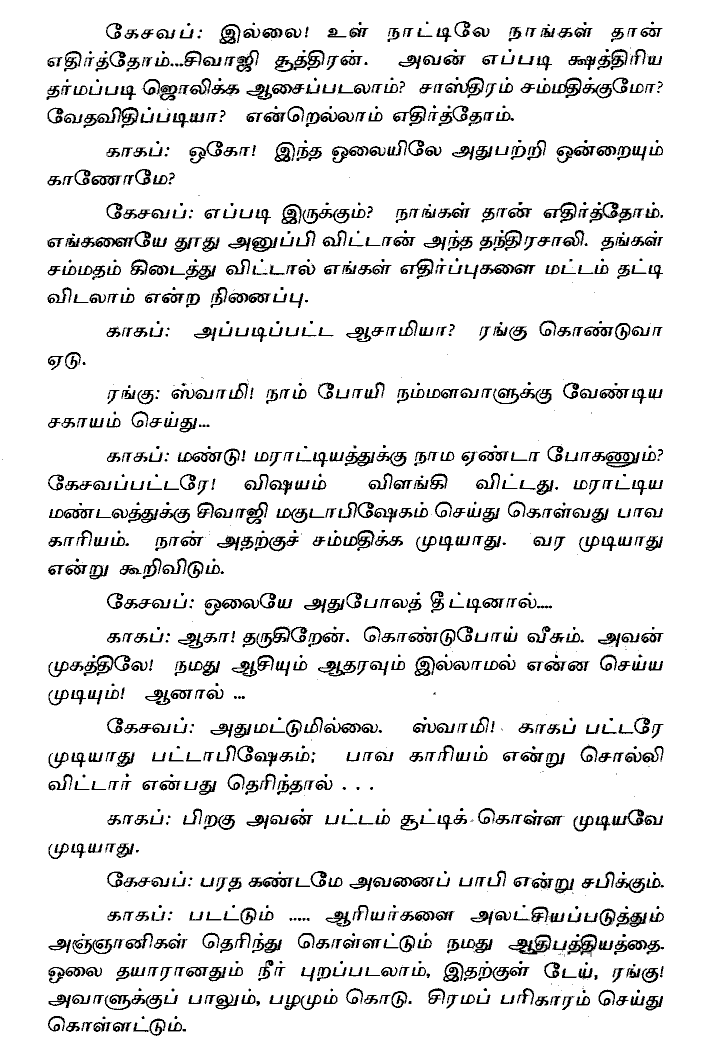 கேசவப்: இல்லை! உள் நாட்டிலே நாங்கள் தான்
எதிர்த்தோம்...சிவாஜி சூத்திரன். அவன் எப்படி க்ஷத்திரிய
தர்மப்படி ஜொலிக்க ஆசைப்படலாம்? சாஸ்திரம் சம்மதிக்குமோ?
வேதவிதிப்படியா? என்றெல்லாம் எதிர்த்தோம்.
காகப்: ஒகோ! இந்த ஒலையிலே அதுபற்றி ஒன்றையும்
காணோமே?
கேசவப்: எப்படி இருக்கும்? நாங்கள் தான் எதிர்த்தோம்.
எங்களையே தூது அனுப்பி விட்டான் அந்த தந்திரசாலி. தங்கள்
சம்மதம் கிடைத்து விட்டால் எங்கள் எதிர்ப்புகளை மட்டம் தட்டி
விடலாம் என்ற நினைப்பு.
காகப்: அப்படிப்பட்ட ஆசாமியா? ரங்கு கொண்டுவா
ஏடு.
ரங்கு: ஸ்வாமி! நாம் போயி நம்மளவாளுக்கு வேண்டிய
சகாயம் செய்து...
காகப்: மண்டு! மராட்டியத்துக்கு நாம ஏண்டா போகணும்?
கேசவப்பட்டரே! விஷயம் விளங்கி விட்டது. மராட்டிய
மண்டலத்துக்கு சிவாஜி மகுடாபிஷேகம் செய்து கொள்வது பாவ
காரியம். நான் அதற்குச் சம்மதிக்க முடியாது. வர முடியாது
என்று கூறிவிடும்.
கேசவப்: ஒலையே அதுபோலத் தீட்டினால்....
காகப்: ஆகா! தருகிறேன். கொண்டுபோய் வீசும். அவன்
முகத்திலே! நமது ஆசியும் ஆதரவும் இல்லாமல் என்ன செய்ய
முடியும்! ஆனால் ...
கேசவப்: அதுமட்டுமில்லை. ஸ்வாமி! காகப் பட்டரே
முடியாது பட்டாபிஷேகம்; பாவ காரியம் என்று சொல்லி
விட்டார் என்பது தெரிந்தால் . . .
காகப்: பிறகு அவன் பட்டம் சூட்டிக் கொள்ள முடியவே
முடியாது.
கேசவப்: பரத கண்டமே அவனைப் பாபி என்று சபிக்கும்.
காகப்: படட்டும் ..... ஆரியர்களை அலட்சியப்படுத்தும்
அஞ்ஞானிகள் தெரிந்து கொள்ளட்டும் நமது ஆதிபத்தியத்தை.
ஒலை தயாரானதும் நீர் புறப்படலாம், இதற்குள் டேய், ரங்கு!
அவாளுக்குப் பாலும், பழமும் கொடு. சிரமப் பரிகாரம் செய்து
கொள்ளட்டும்.